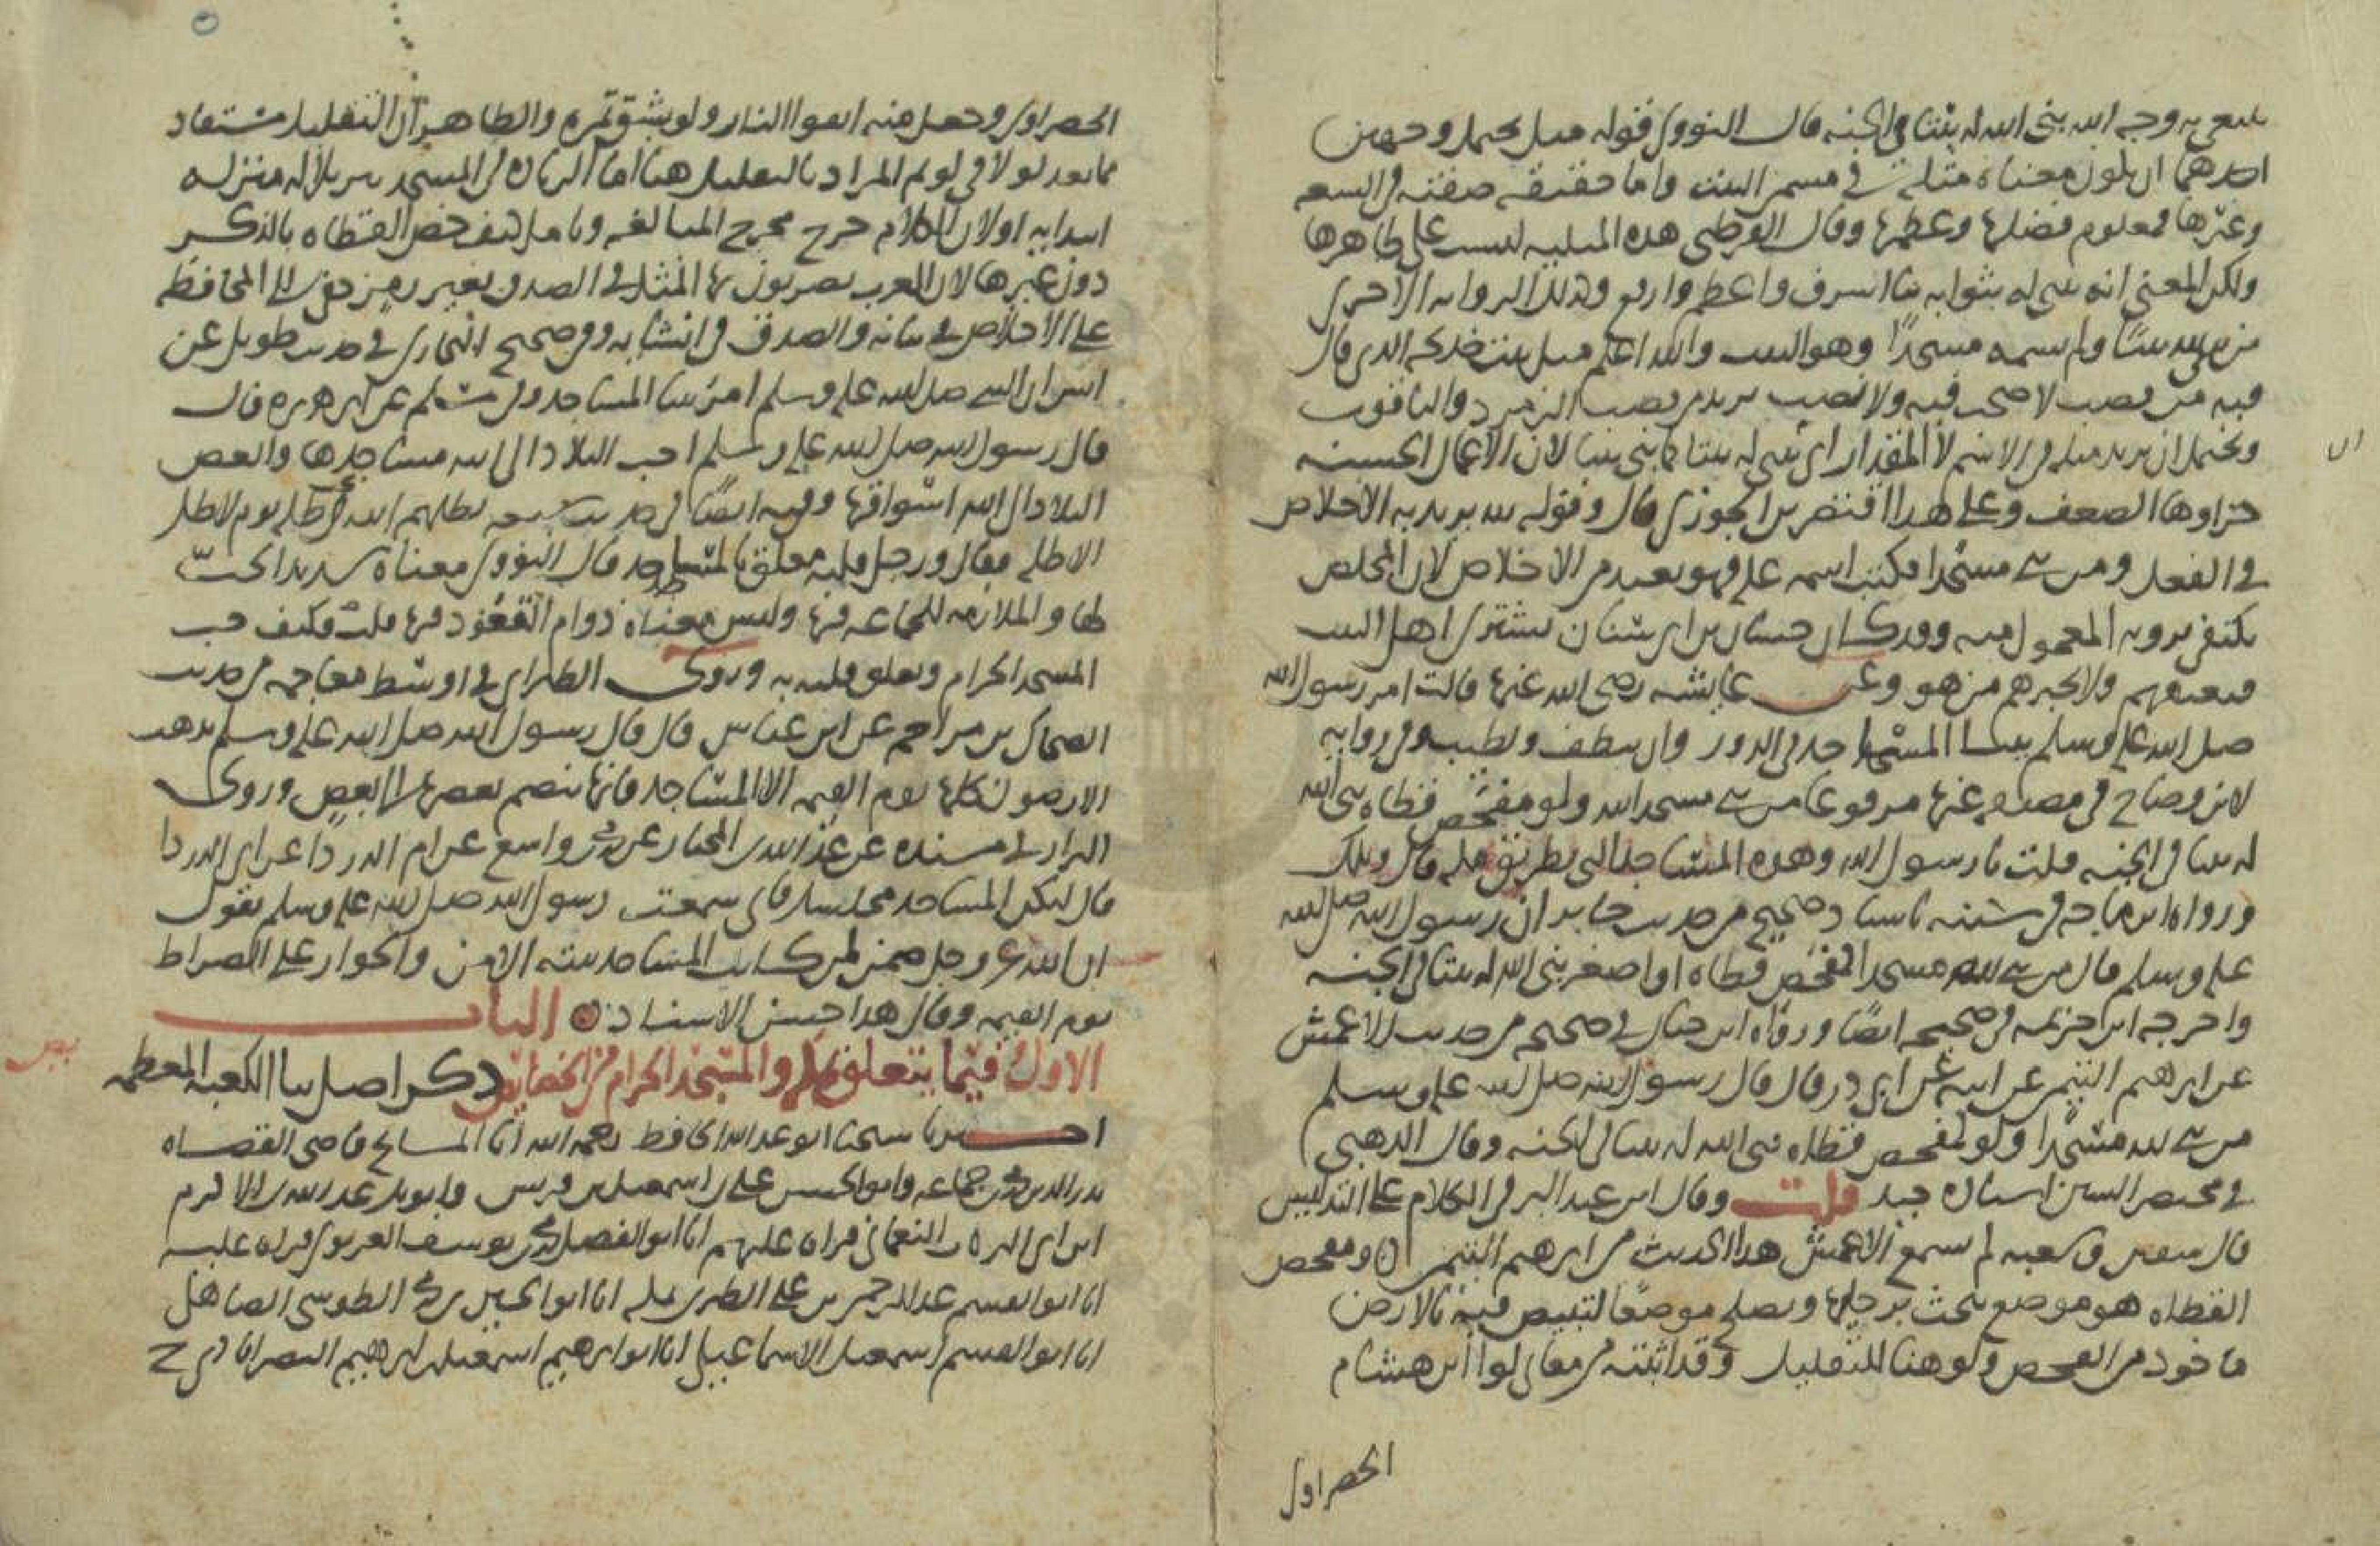 يبتغي به وجه الله بنى الله له بيتا في الجنة قال النووي قوله مثله يحتمل وجهين
احدهما ان يكون معناه مثله في مسمى البيت واما حقيقة صفته في السعة
وغيرها فمعلوم فضلها وعظمها وقال القرطبي هذه المثلية ليست على ظاهرها
ولكن المعنى انه بنى له بثوابه بيتا اشرف واعظم وارفع وكذلك الرواية الاخرى
من بنى لله بيتا ولم يسمه مسجدًا وهو البيت والله اعلم مثل بيت خديجة الذي قال
فيه من قصب لا صخب فيه ولا نصب يريد من قصب الزمرد والياقوت
ويحتمل ان يريد مثله في الاسم لا المقدار اي بنى له بيتا كما بنى بيتا لان الاعمال الحسنة
جزاوها الضعف وعلى هذا اقتصر ابن الجوزي قال وقوله لله يريد به الاخلاص
في الفعل ومن بنى مسجدا فكتب اسمه عليه فهو بعيد من الاخلاص لان المخلص
يكتفي بروية المعمول معه وقد كان حسان بن ابي سنان يشتري اهل البيت
فيعتقهم ولا يخبرهم من هو وعن عايشة رضي الله عنها قالت امر رسول الله
صلى الله عليه وسلم ببنا المساجد في الدور وان ينظف وتطيب وفي رواية
لابن وضاح في مصنفه عنها مرفوعا من بنى مسجدا لله ولو مفحص قطاه بنى الله
له بيتا في الجنة قلت يا رسول الله وهذه المساجد التي بطريق مكه قال وتلك
ورواه ابن ماجه في سننه باسناد صحيح من حديث جابر ان رسول الله صلى الله
عليه وسلم قال من بنى لله مسجدا كمفحص قطاه او اصغر بنى الله له بيتا في الجنة
واخرجه ابن خزيمه في صحيحه ايضًا ورواه ابن حبان في صحيحه من حديث الاعمش
عن ابرهيم التيمي عن ابيه عن ابي ذر قال قال رسول الله صلى الله عليه وسلم
من بنى لله مسجدًا ولو كمفحص قطاه بنى الله له بيتا في الجنة وقال الذهبي
في مختصر السنن اسناده جيد قلت وقال ابن عبد البر في الكلام على التدليس
قال شعبه لم يسمع الاعمش هذا الحديث من ابرهيم التيمي ومفحص
القطاه هو موضع تبحث برجلها وتصلح موضعًا لتبيض فيه بالارض
ماخوذ من الفحص ولو هنا للتقليل وقد اثبته من معاني لو ابن هشام
الخضراوي
الخضراوي وجعل منه اتقوا النار ولو بشق تمره والظاهر ان التقليل مستفاد
مما بعد لو لا من لو ثم المراد بالتقليل هنا اما الزياده في المسجد تنزيلا له منزلة
ابتدايه او لان الكلام خرج مخرج المبالغه وتامل كيف خص القطاه بالذكر
دون غيرها لان العرب يضربون بها المثل في الصدق ففيه رمز خفي الى المحافظة
على الاخلاص في بنائه والصدق في انشايه وفي صحيح البخاري في حديث طويل عن
انس ان النبي صلى الله عليه وسلم امر ببنا المساجد وفي مسلم عن ابي هريره قال
قال رسول الله صلى الله عليه وسلم احب البلاد الى الله مساجدها وابغض
البلاد الى الله اسواقها وفيه ايضًا في حديث سبعه يظلهم الله في ظله يوم لا ظل
الا ظله فقال ورجل قلبه معلق بالمساجد قال النووي معناه شديد الحب
لها والملازمه للجماعه فيها وليس معناه دوام القعود فيها قلت فكيف حب
المسجد الحرام وتعلق قلبه به وروى الطبراني في اوسط معاجمه من حديث
الضحاك بن مزاحم عن ابن عباس قال قال رسول الله صلى الله عليه وسلم تذهب
الارضون كلها يوم القيمه الا المساجد فانها ينضم بعضها الى بعض وروى
البزار في مسنده عن عبد الله بن المختار عن محمد بن واسع عن ام الدرداء عن ابي الدرداء
قال لتكن المساجد مجلسك فاني سمعت رسول الله صلى الله عليه وسلم يقول
ان الله عز وجل ضمن لمن كانت المساجد بيته الامن والجواز على الصراط
يوم القيمه وقال هذا حسن الاسناد الباب
الاول فيما يتعلق بمكه والمسجد الحرام من الخصايص ذكر اصل بنا الكعبه المعظمه
اخبرنا شيخنا ابو عبد الله الحافظ رحمه الله انا المشايخ قاضي القضاه
بدر الدين محمد بن جماعه وابو الحسن علي بن اسمعيل بن قريش
ابن ابي البركات النعماني قراة عليهم انا ابو الفضل محمد بن يوسف الغزنوي قراة عليه
انا ابو القسم عبد الرحمن بن انا ابو الطوسي
انا ابو القسم اسمعيل الاسماعيلي انا ابو ابرهيم اسمعيل بن ابرهيم